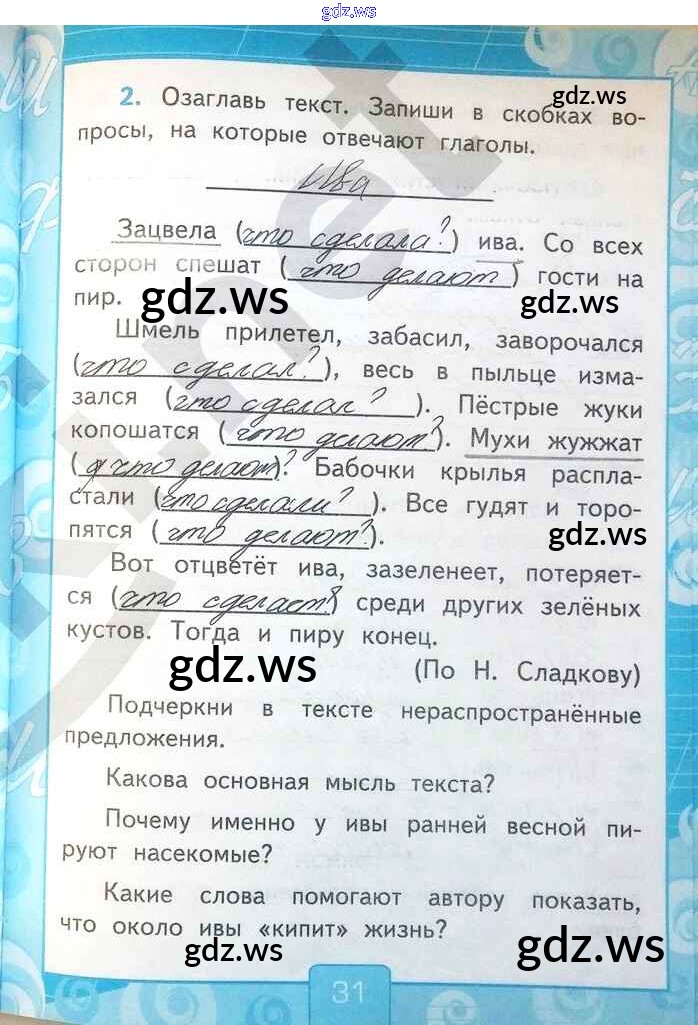 gdz.ws
gdz.ws
2. Озаглавь текст. Запиши в скобках во-
просы, на которые отвечают глаголы.
Ива
Зацвела (что сделала?) ива. Со всех
сторон спешат (что делают) гости на
пир.
gdz.ws
gdz.ws
Шмель прилетел, забасил, заворочался
(что сделал?), весь в пыльце изма-
зался (что сделал?). Пёстрые жуки
копошатся (что делают?). Мухи жужжат
(что делают)? Бабочки крылья распла-
стали (что сделали?). Все гудят и торо-
пятся (что делают?).
gdz.ws
Вот отцветёт ива, зазеленеет, потеряет-
ся (что сделает?) среди других зелёных
кустов. Тогда и пиру конец.
gdz.ws
(По Н. Сладкову)
Подчеркни в тексте нераспространённые
предложения.
Какова основная мысль текста?
Почему именно у ивы ранней весной пи-
руют насекомые?
Какие слова помогают автору показать,
что около ивы «кипит» жизнь?
gdz.ws
gdz.ws
31